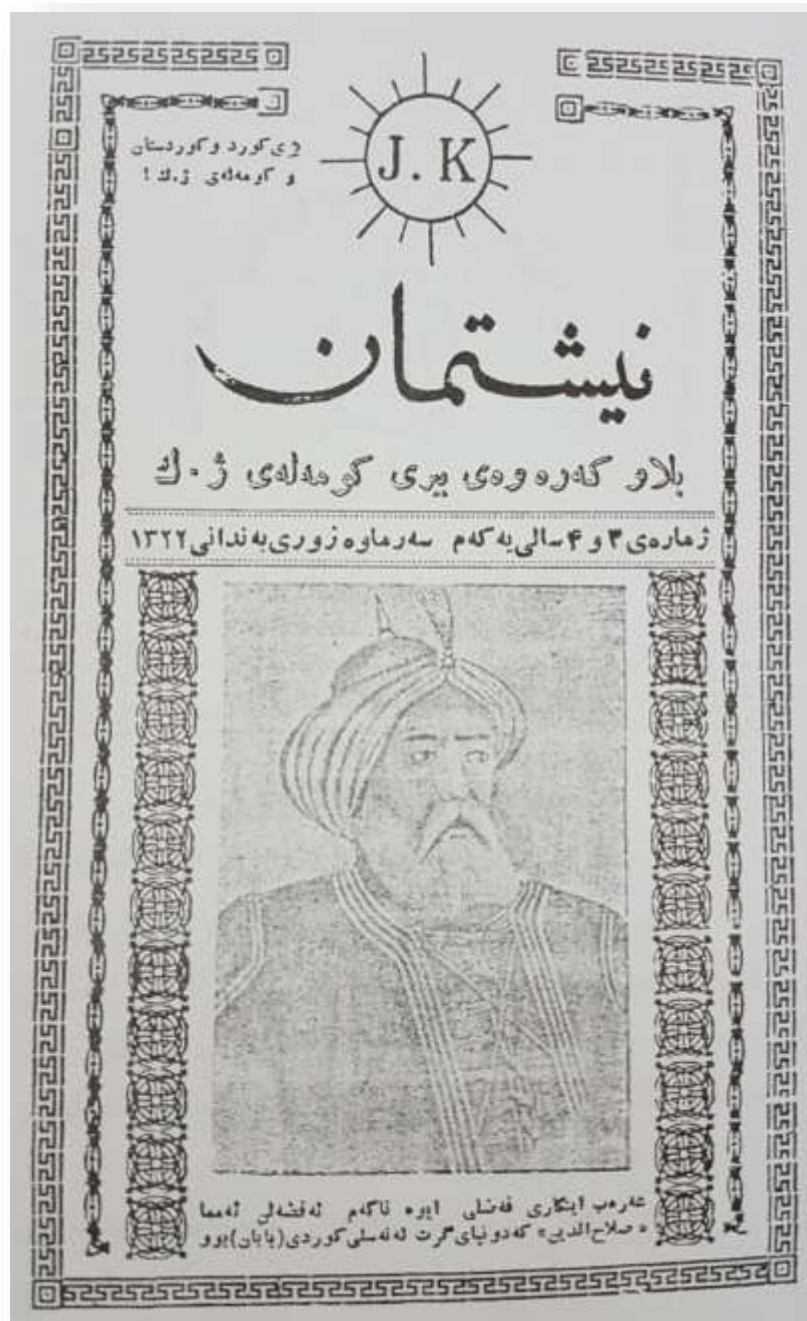 J. K
ژی کورد و کوردستان
و کومه‌له‌ی ژ.ك !
نیشتمان
بلاو که‌ره‌وه‌ی بیری کومه‌له‌ی ژ.ك
ژماره‌ی ۳ و ۴ سالی یه‌که‌م سه‌رماوه‌ز و ری‌به‌ندانی ۱۳۲۲
عه‌ره‌ب اینکاری فه‌ضلی ایوه ناکه‌م ئه‌فضه‌لن ئه‌مما
«صلاح‌الدین» که‌دونیای گرت له‌نه‌سلی کوردی (بابان) بوو